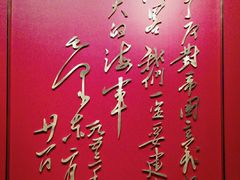 了反對帝國主義
略我們一定要建
大的海軍
毛澤東
一九五三年
二月
廿一日